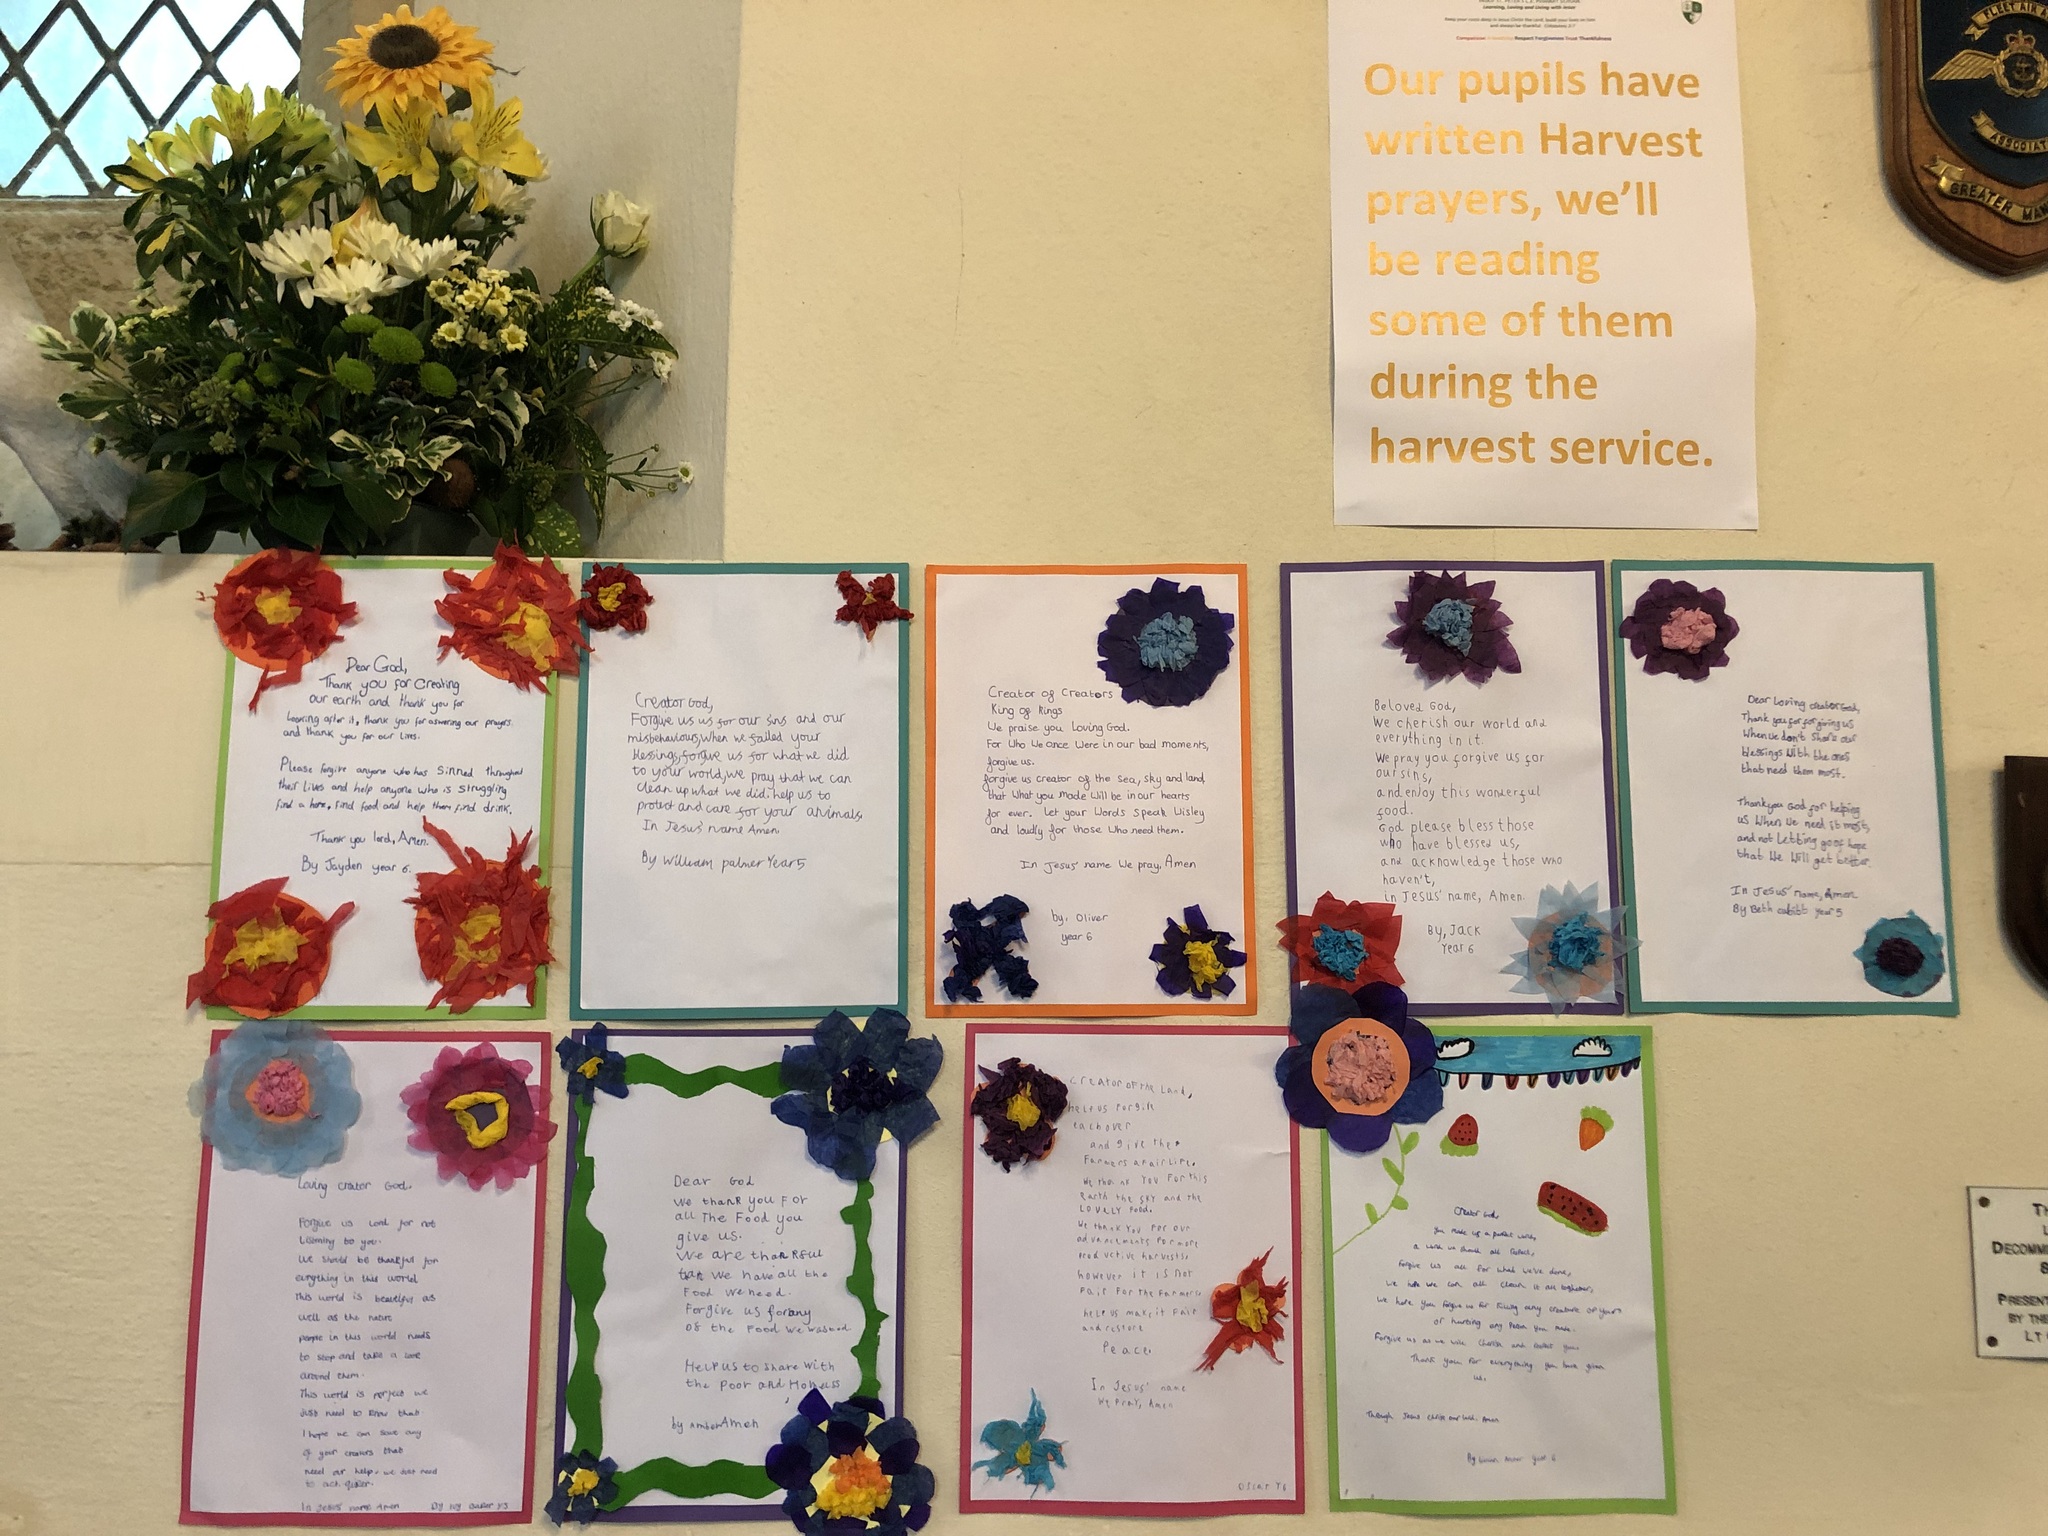 Learning, Loving and Living with Jesus
Our pupils have
written Harvest
prayers, we'll
be reading
some of them
during the
harvest service.
FLEET AIR
ASSOCIAT
GREATER MAN
Dear God,
Thank you for Creating
our earth and thank you for
Looking after it, thank you for aswering our prayers.
and thank you for our lives.
Please forgive anyone who has Sinned throughout
their lives and help anyone who is struggling
find a home, find food and help them find drink.
Thank you lord, Amen.
By Jayden year 6.
Creator God,
Forgive us us for our sins and our
misbehaviour, when we failed your
blessings, forgive us for what we did
to your world, we pray that we can
clean up what we did, help us to
protect and care for your animals.
In Jesus' name Amen.
By William palmer Year 5
Creator of Creators
King of Kings
We praise you Loving God.
For Who We once Were in our bad moments,
forgive us.
forgive us creator of the sea, sky and land
that What you made Will be in our hearts
for ever. Let your Words Speak Wisley
and loudly for those Who need them.
In Jesus' name We pray, Amen
by, Oliver
year 6
Beloved God,
We cherish our world and
everything in it.
We pray you forgive us for
our sins,
and enjoy this wonderful
food.
God please bless those
who have blessed us,
and acknowledge those who
haven't,
in Jesus' name, Amen.
By, Jack
Year 6
Dear Loving creator God,
Thank you for forgiving us
When we don't share our
blessings With the ones
that need them most.
Thankyou God for helping
us When We need it most,
and not Letting go of hope
that We Will get better.
In Jesus' name, Amen
By Beth year 5
Loving creator God.
Forgive us Lord for not
Listening to you.
We should be thankful for
everything in this world
This world is beautiful as
well as the nature
people in this world needs
to stop and take a look
around them.
This world is perfect we
just need to know that.
I hope we can save any
of your creators that
need our help, we just need
to act quicker.
In Jesus' name Amen By Ivy Y5
Dear God
We thank you For
all The Food you
give us.
We are thankful
We have all the
Food We need.
Forgive us for any
of the Food We wasted
Help us to share With
the Poor and Homeless
by Amber Amen
Creator of the Land,
help us forgive
each over
and give the
Farmers a fair Life.
We thank You For this
Earth the sky and the
LOVELY Food.
We thank You For our
advancements For more
productive harvests,
however it is Not
Fair For the Farmers
help us make it Fair
and restore
Peace.
In Jesus' name
We Pray, Amen
Oscar Y6
Creator God,
You made us a perfect world,
a world we should all respect,
Forgive us all for what we've done,
We hope we can all clean it all together,
We hope you forgive us for killing any creature of yours
or hurting any you made.
Forgive us as we will Cherish and you
Thank you for everything you have given
us.
Through Jesus Christ our Lord. Amen
By Year 6
DECOMM
PRESENT
BY THE
LT